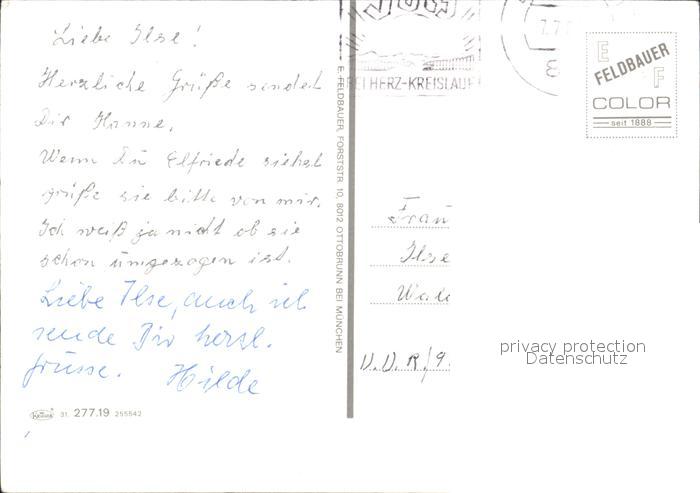 Liebe Ilse!
Herzliche Grüße sendet
Dir Hanne.
Wenn Du Elfriede siehst
grüße sie bitte von mir.
Ich weiß ja nicht ob sie
schon umgezogen ist.
Liebe Ilse, auch ich
sende Dir herzl.
Grüsse. Hilde
31. 277.19 255542
E. FELDBAUER, FORSTSTR. 10, 8012 OTTOBRUNN BEI MÜNCHEN
BEI HERZ-KREISLAUF
E
FELDBAUER
F
COLOR
seit 1888
Frau
Ilse
D.D.R./9
privacy protection
Datenschutz